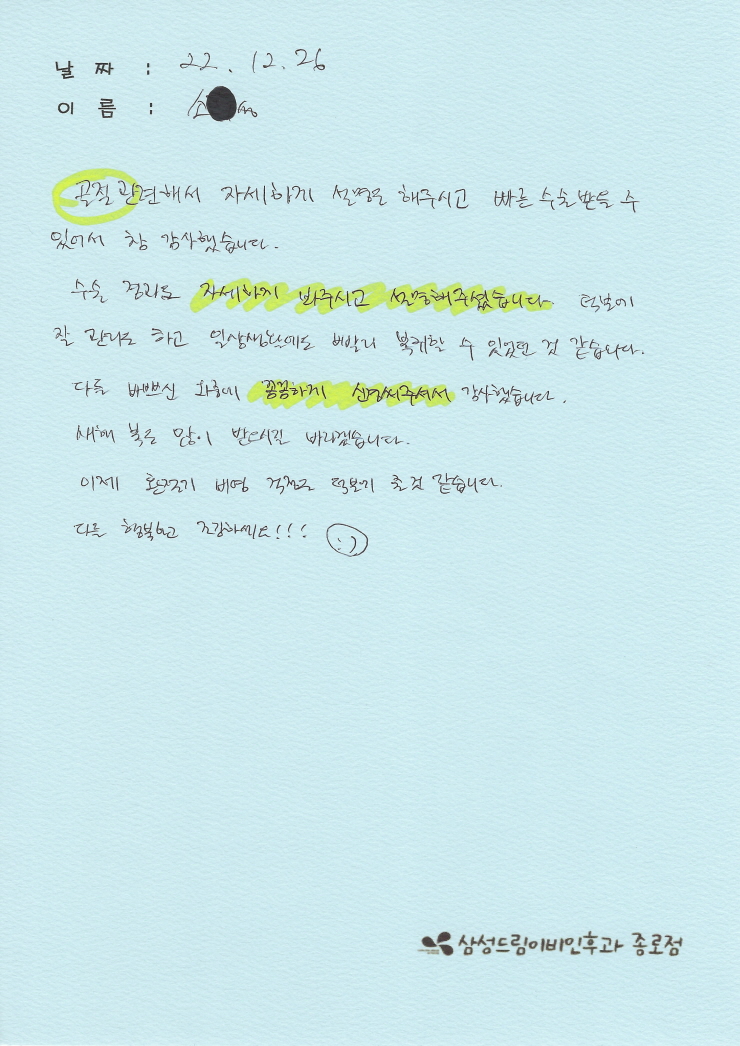 날 짜 : 22. 12. 26
이 름 : 소 성
골절 관련해서 자세하게 설명도 해주시고 빠른 수술받을 수
있어서 참 감사했습니다.
수술 경과도 자세하게 봐주시고 설명해주셨습니다. 덕분에
잘 관리도 하고 일상생활에도 빨리 복귀할 수 있었던 것 같습니다.
다들 바쁘신 와중에 꼼꼼하게 신경써주셔서 감사했습니다.
새해 복도 많이 받으시길 바라겠습니다.
이제 환절기 비염 걱정도 덜 것 같습니다.
다들 행복하고 건강하세요!!! :)
삼성드림이비인후과 종로점